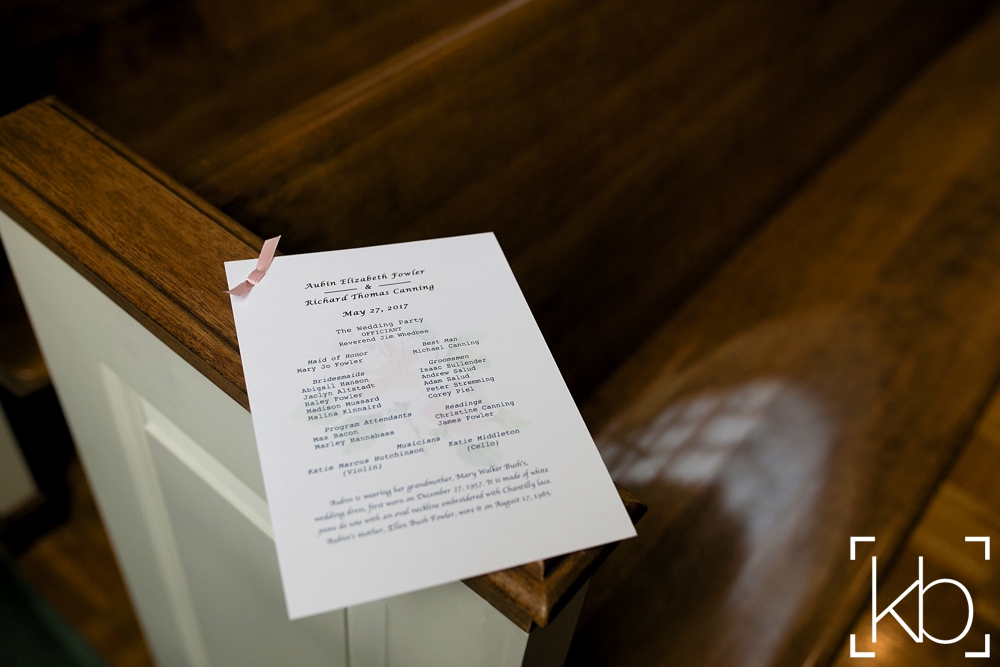 Aubin Elizabeth Fowler
&
Richard Thomas Canning
May 27, 2017
The Wedding Party
OFFICIANT
Reverend Jim Whedbee
Maid of Honor
Mary Jo Fowler
Best Man
Michael Canning
Bridesmaids
Abigail Hanson
Jaclyn Altstadt
Haley Fowler
Madison Mussard
Malina Kinnaird
Groomsmen
Isaac Sullender
Andrew Salud
Adam Salud
Peter Stremming
Corey Piel
Program Attendants
Max Bacon
Marley Hannabass
Readings
Christine Canning
James Fowler
Musicians
Katie Marcus Hutchinson
(Violin)
Katie Middleton
(Cello)
Aubin is wearing her grandmother, Mary Walker Bush's,
wedding dress, first worn on December 27, 1957. It is made of white
peau de soie with an oval neckline embroidered with Chantilly lace.
Aubin's mother, Ellen Bush Fowler, wore it on August 17, 1985.
kb